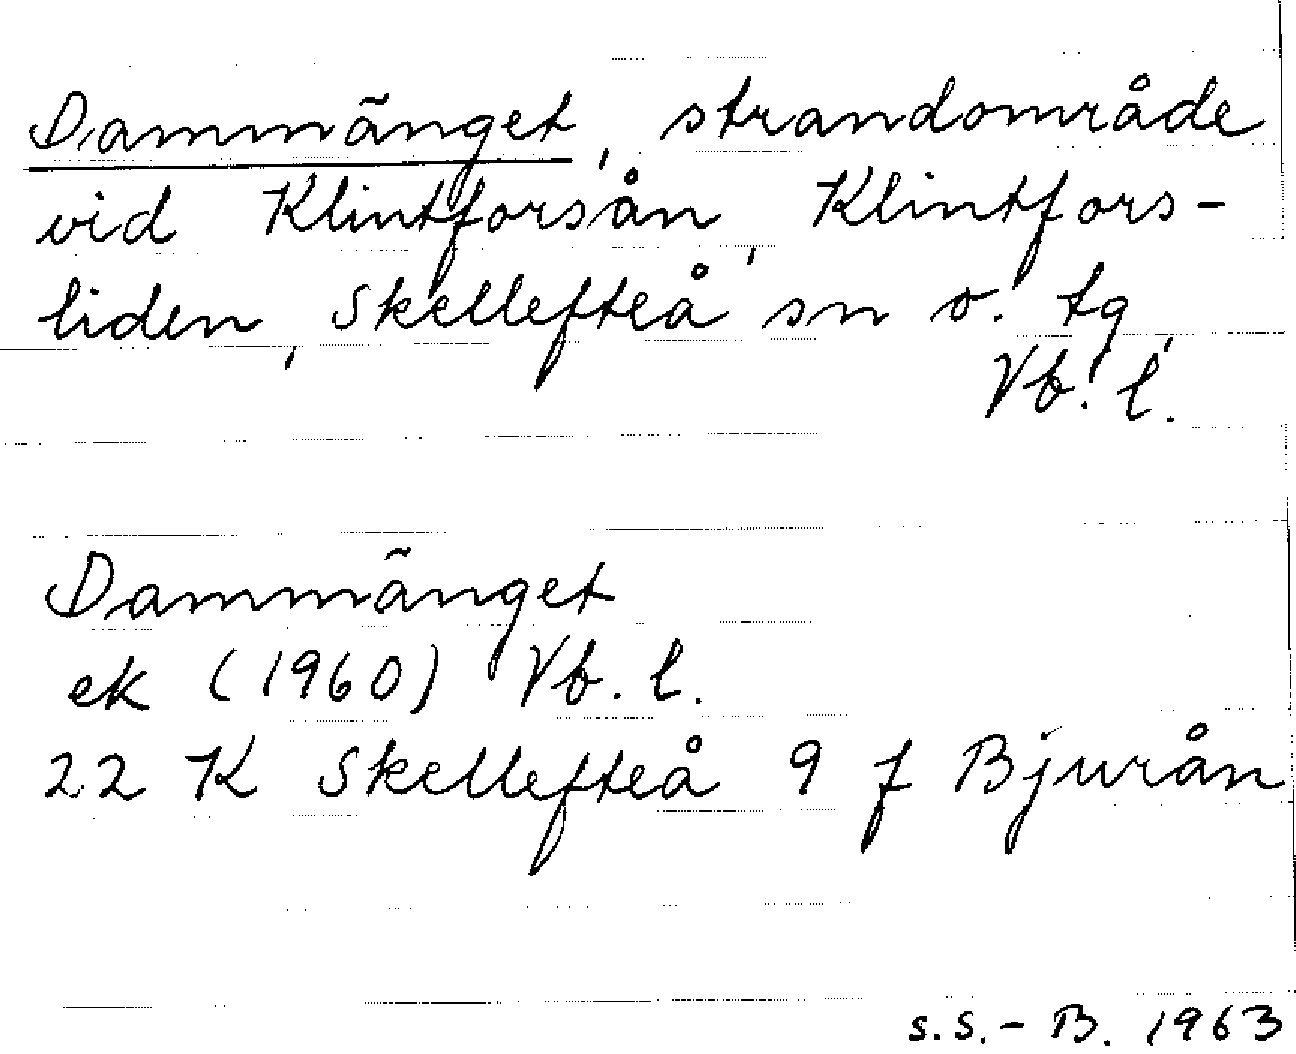 Dammänget, strandområde
vid Klintforsån, Klintfors-
liden, Skellefteå sn o. tg,
Vb. l.
Dammänget
ek (1960) Vb. l.
22 K Skellefteå 9 f Bjurån
s.s.-B. 1963